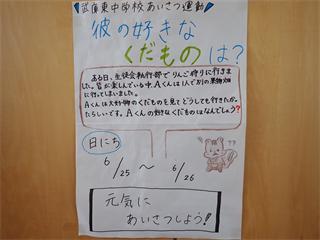 東中学校あいさつ運動
彼の好きな
くだものは?
ある日、生徒会執行部でりんご狩りに行きま
した。皆が楽しんでいる中、Aくんは1人で別の果物畑
に行ってしまいました。
Aくんは大好物のくだものを見てどうしても行きたかっ
たらしいです。Aくんの好きなくだものはなんでしょう?
??
日にち
6/25 ～ 6/26
元気に
あいさつしよう!